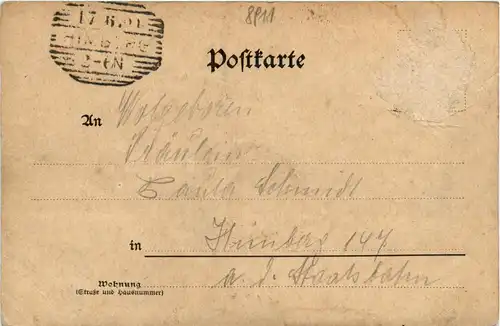 8911
17.6.01
HIMBERG
2-6N
Postkarte
An Wolgeboren
Fräulein
Paula Schmidt
in Himberg 147
a. d. Staatsbahn
Wohnung
(Straße und Hausnummer)